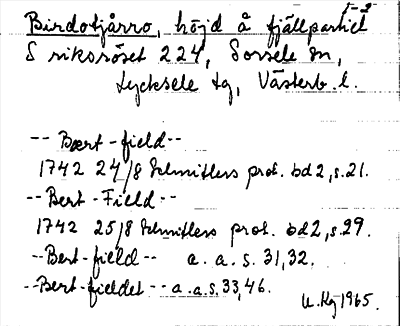 I-2
Birdotjårro, höjd å fjällpartiet
S riksröset 224, Sorsele sn,
Lycksele tg, Västerb. l.
-- Bært-field--
1742 24/8 Schnitlers prot. bd 2, s. 21.
-- Bert-Field--
1742 25/8 Schnitlers prot. bd 2, s. 29.
--Bert-field-- a. a. s. 31, 32.
--Bert-fieldet-- a. a. s. 33, 46.
1965.